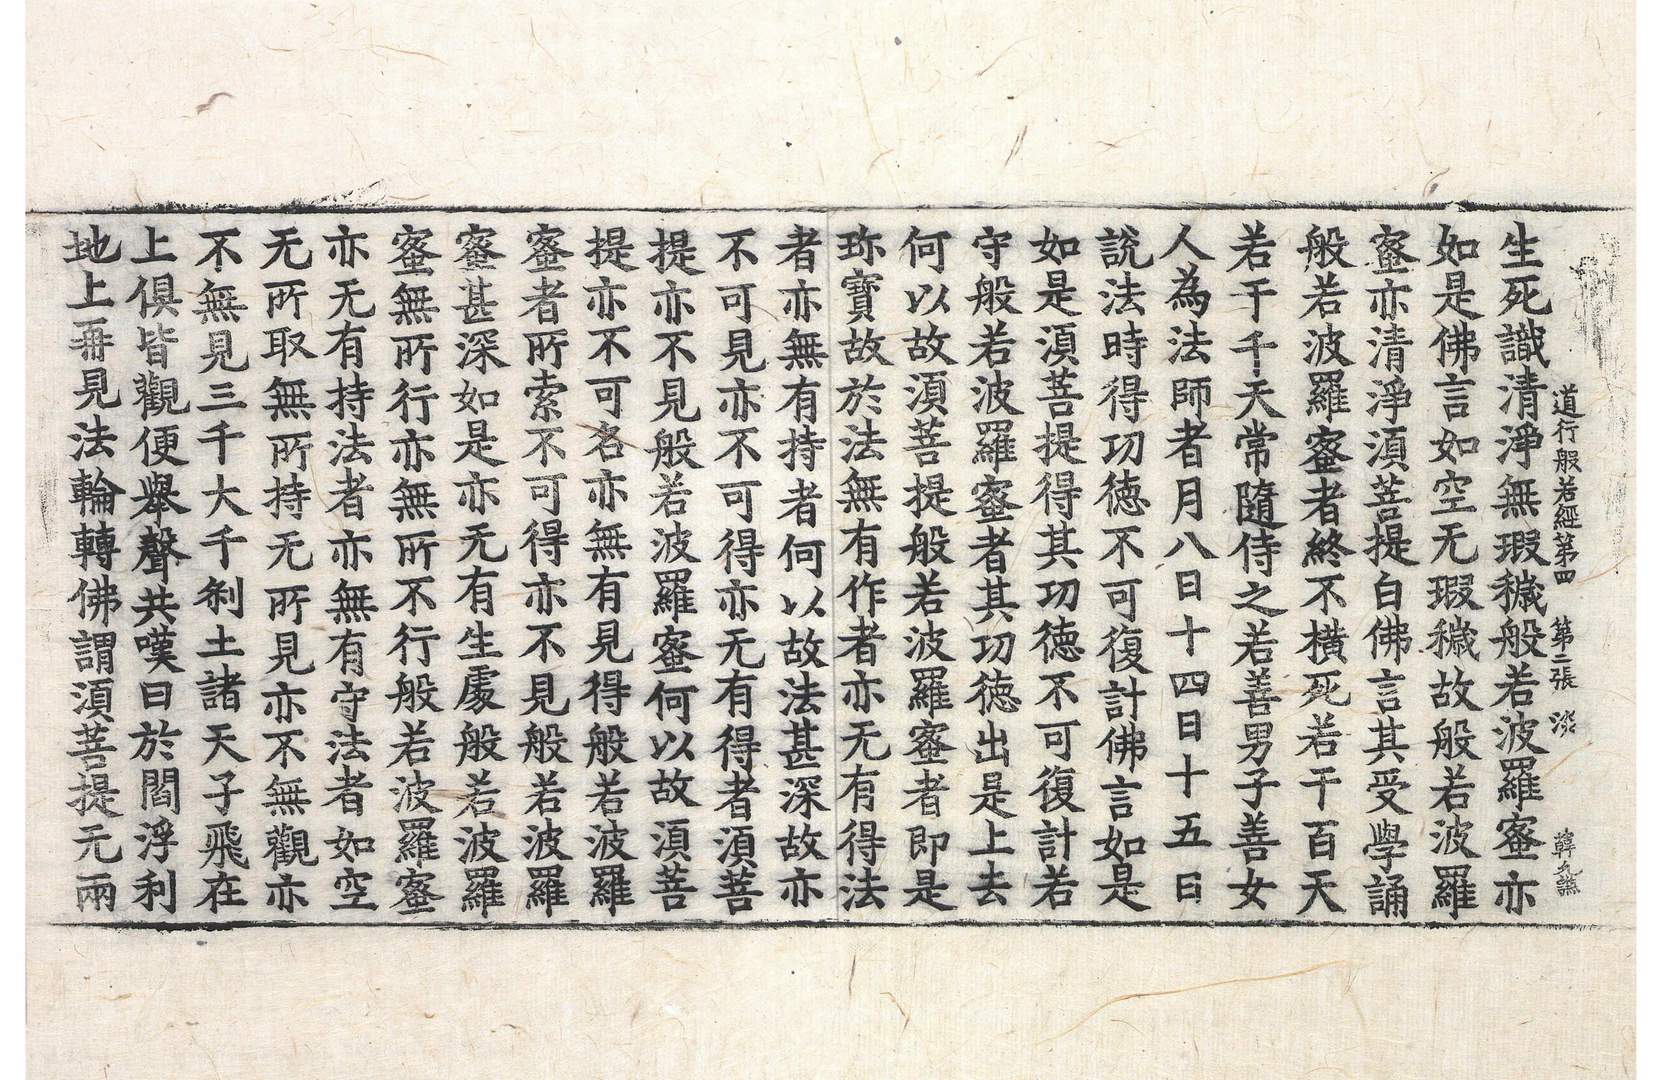 道行般若經第四 第二張 淡
生死識清淨無瑕穢般若波羅蜜亦
如是佛言如空无瑕穢故般若波羅
蜜亦清淨須菩提白佛言其受學誦
般若波羅蜜者終不橫死若干百天
若干千天常隨侍之若善男子善女
人為法師者月八日十四日十五日
說法時得功德不可復計佛言如是
如是須菩提得其功德不可復計若
守般若波羅蜜者其功德出是上去
何以故須菩提般若波羅蜜者即是
珎寶故於法無有作者亦无有得法
者亦無有持者何以故法甚深故亦
不可見亦不可得亦无有得者須菩
提亦不見般若波羅蜜何以故須菩
提亦不可名亦無有見得般若波羅
蜜者所索不可得亦不見般若波羅
蜜甚深如是亦无有生處般若波羅
蜜無所行亦無所不行般若波羅蜜
亦无有持法者亦無有守法者如空
无所取無所持无所見亦不無觀亦
不無見三千大千刹土諸天子飛在
上俱皆觀便舉聲共嘆曰於閻浮利
地上再見法輪轉佛謂須菩提无兩